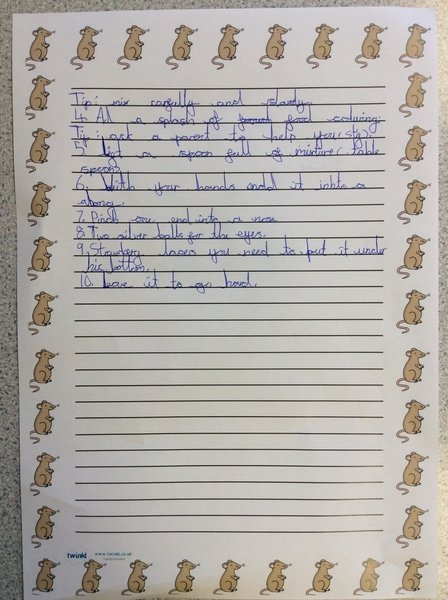 Tip: mix carefully and slowly.
4. Ad a splash of food coulering.
Tip: ask a parent to help you(sty)
5. Get a spoon full of mixture( table
spoon).
6. With your hands add it into a
oblong.
7. Pinch one end into a nose
8. Two silver balls for the eyes.
9. Strawberry lacers you need to put it under
his bottom.
10. Leave it to go hard.
twinkl www.twinkl.co.uk